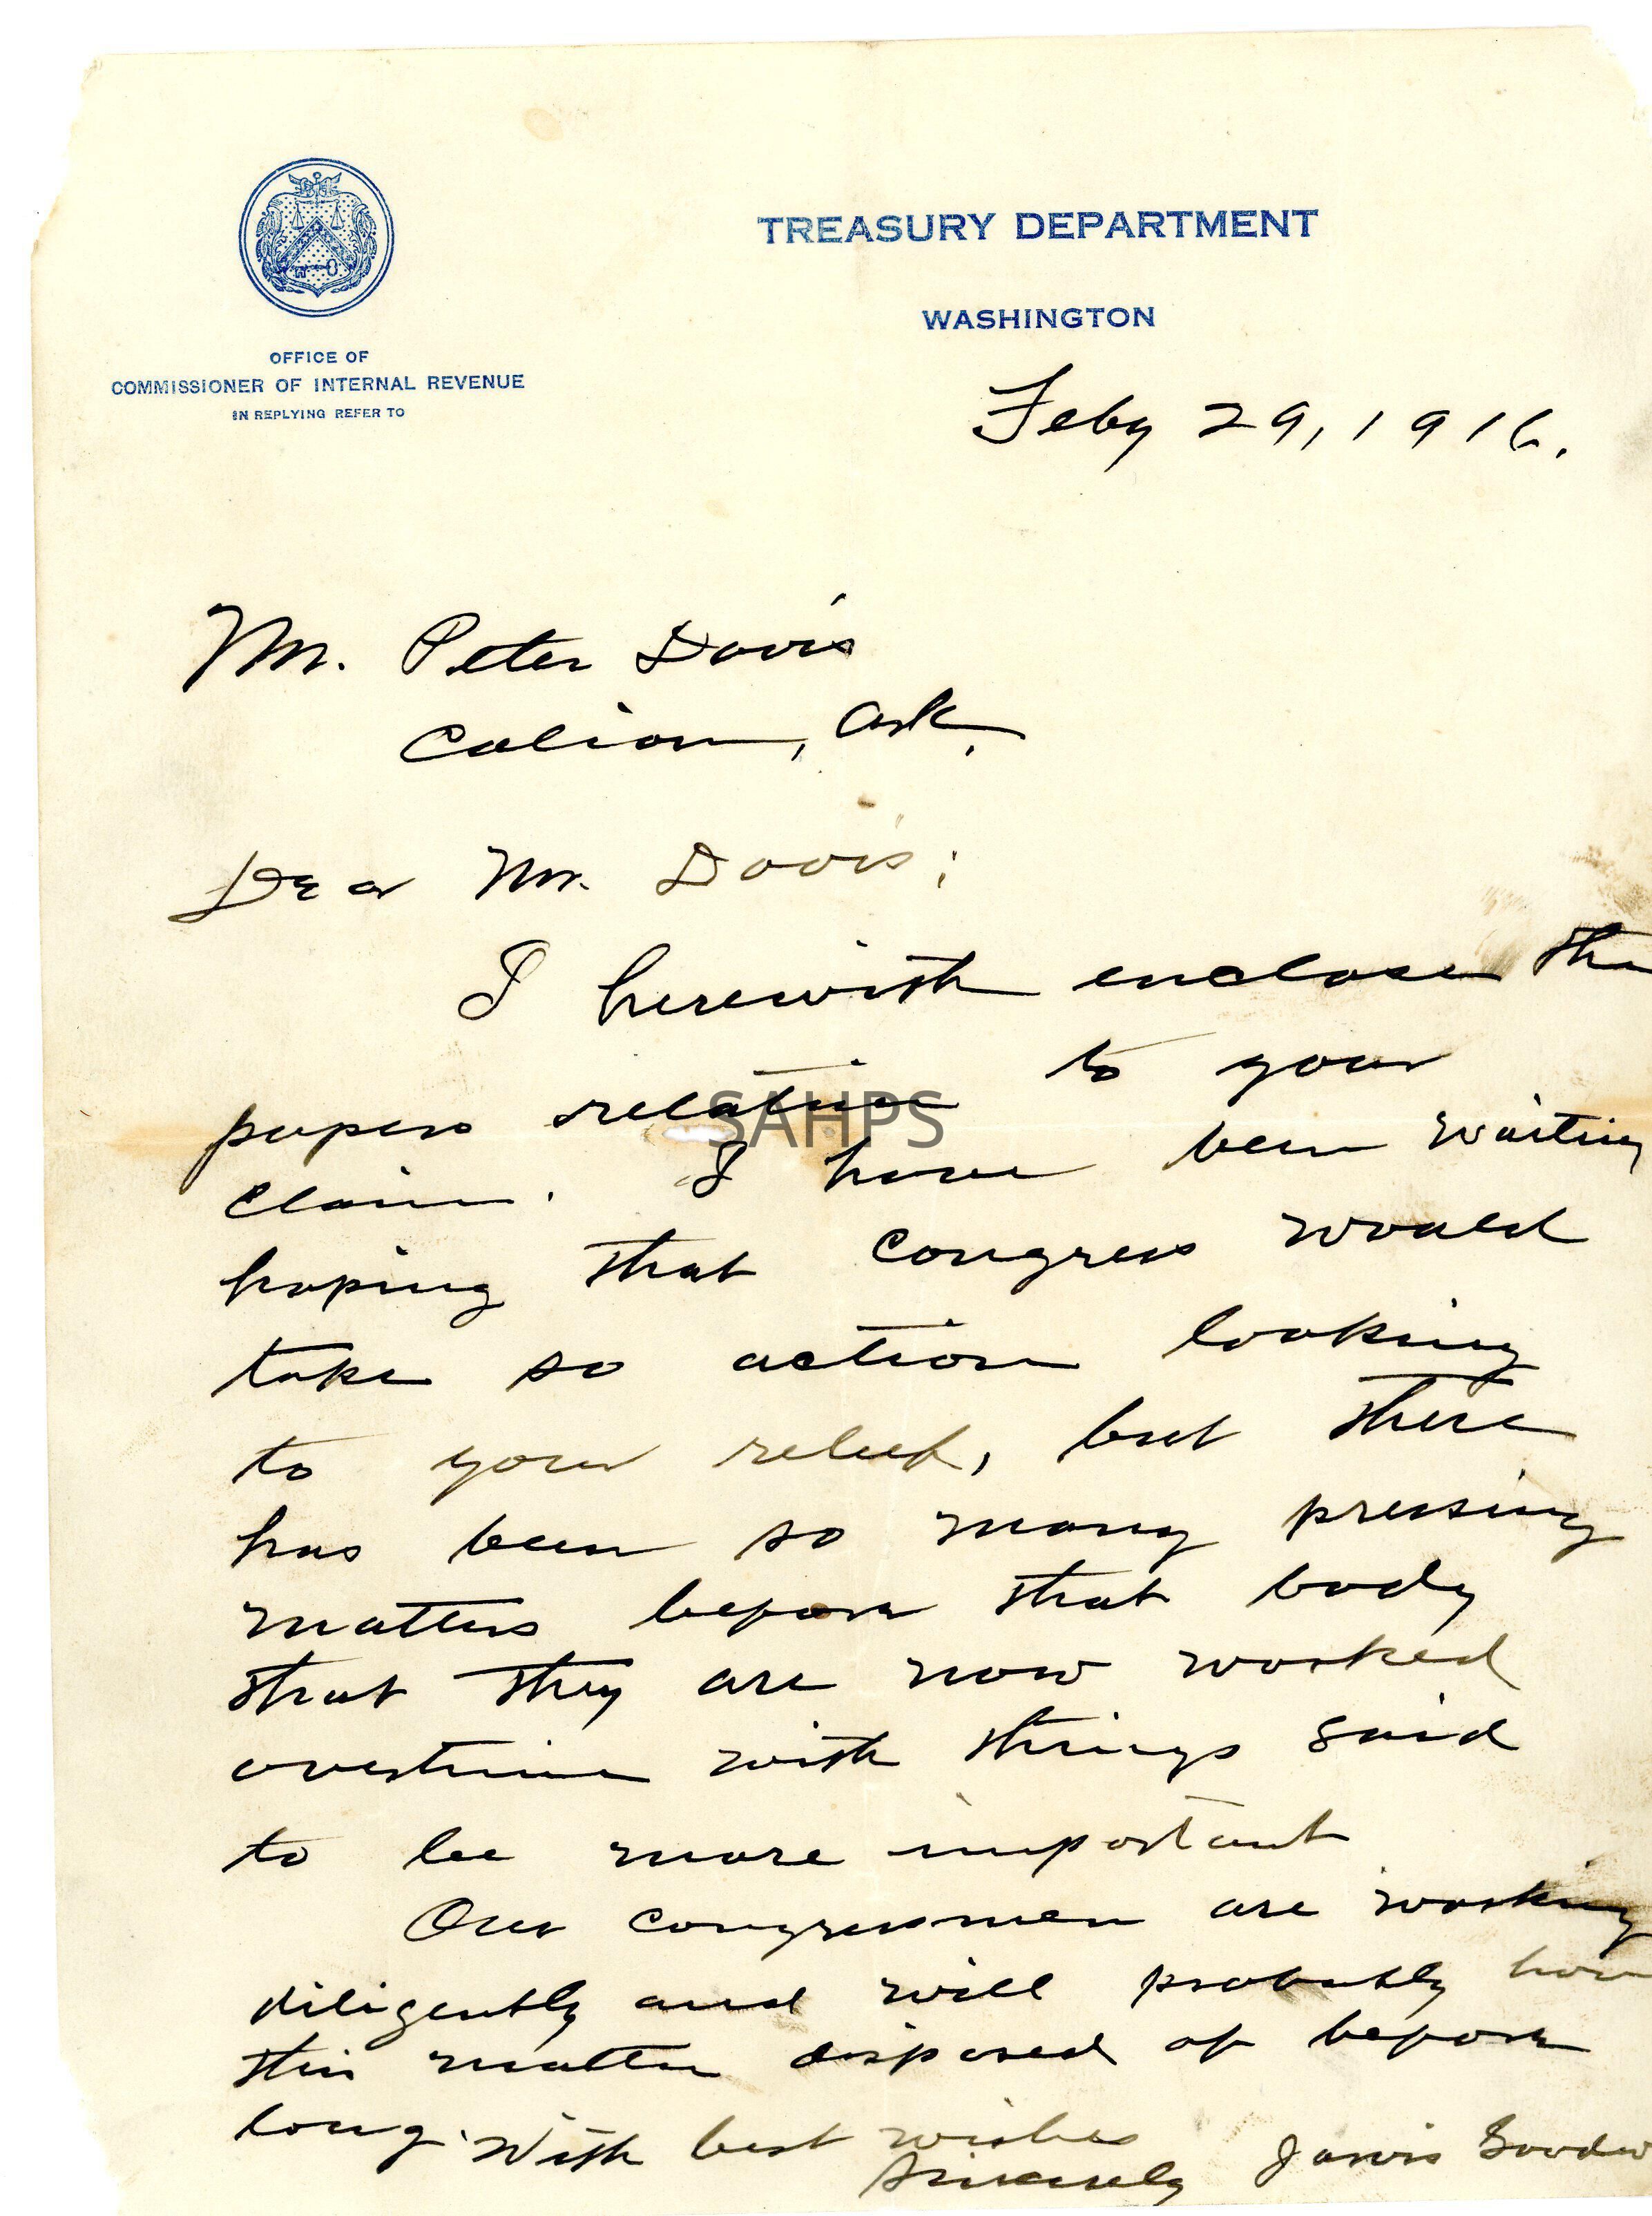 TREASURY DEPARTMENT
WASHINGTON
OFFICE OF
COMMISSIONER OF INTERNAL REVENUE
IN REPLYING REFER TO
Feby 29, 1916.
Mr. Peter Davis
Calion, Ark.
Dear Mr. Davis;
I herewith enclose the
papers relative to your
claim. I have been waiting
hoping that Congress would
take so action looking
to your relief, but there
has been so many pressing
matters before that body
that they are now worked
overtime with things said
to be more important
Our congressmen are working
diligently and will probably have
this matter disposed of before
long. With best wishes
Sincerely Jarvis
SAHPS